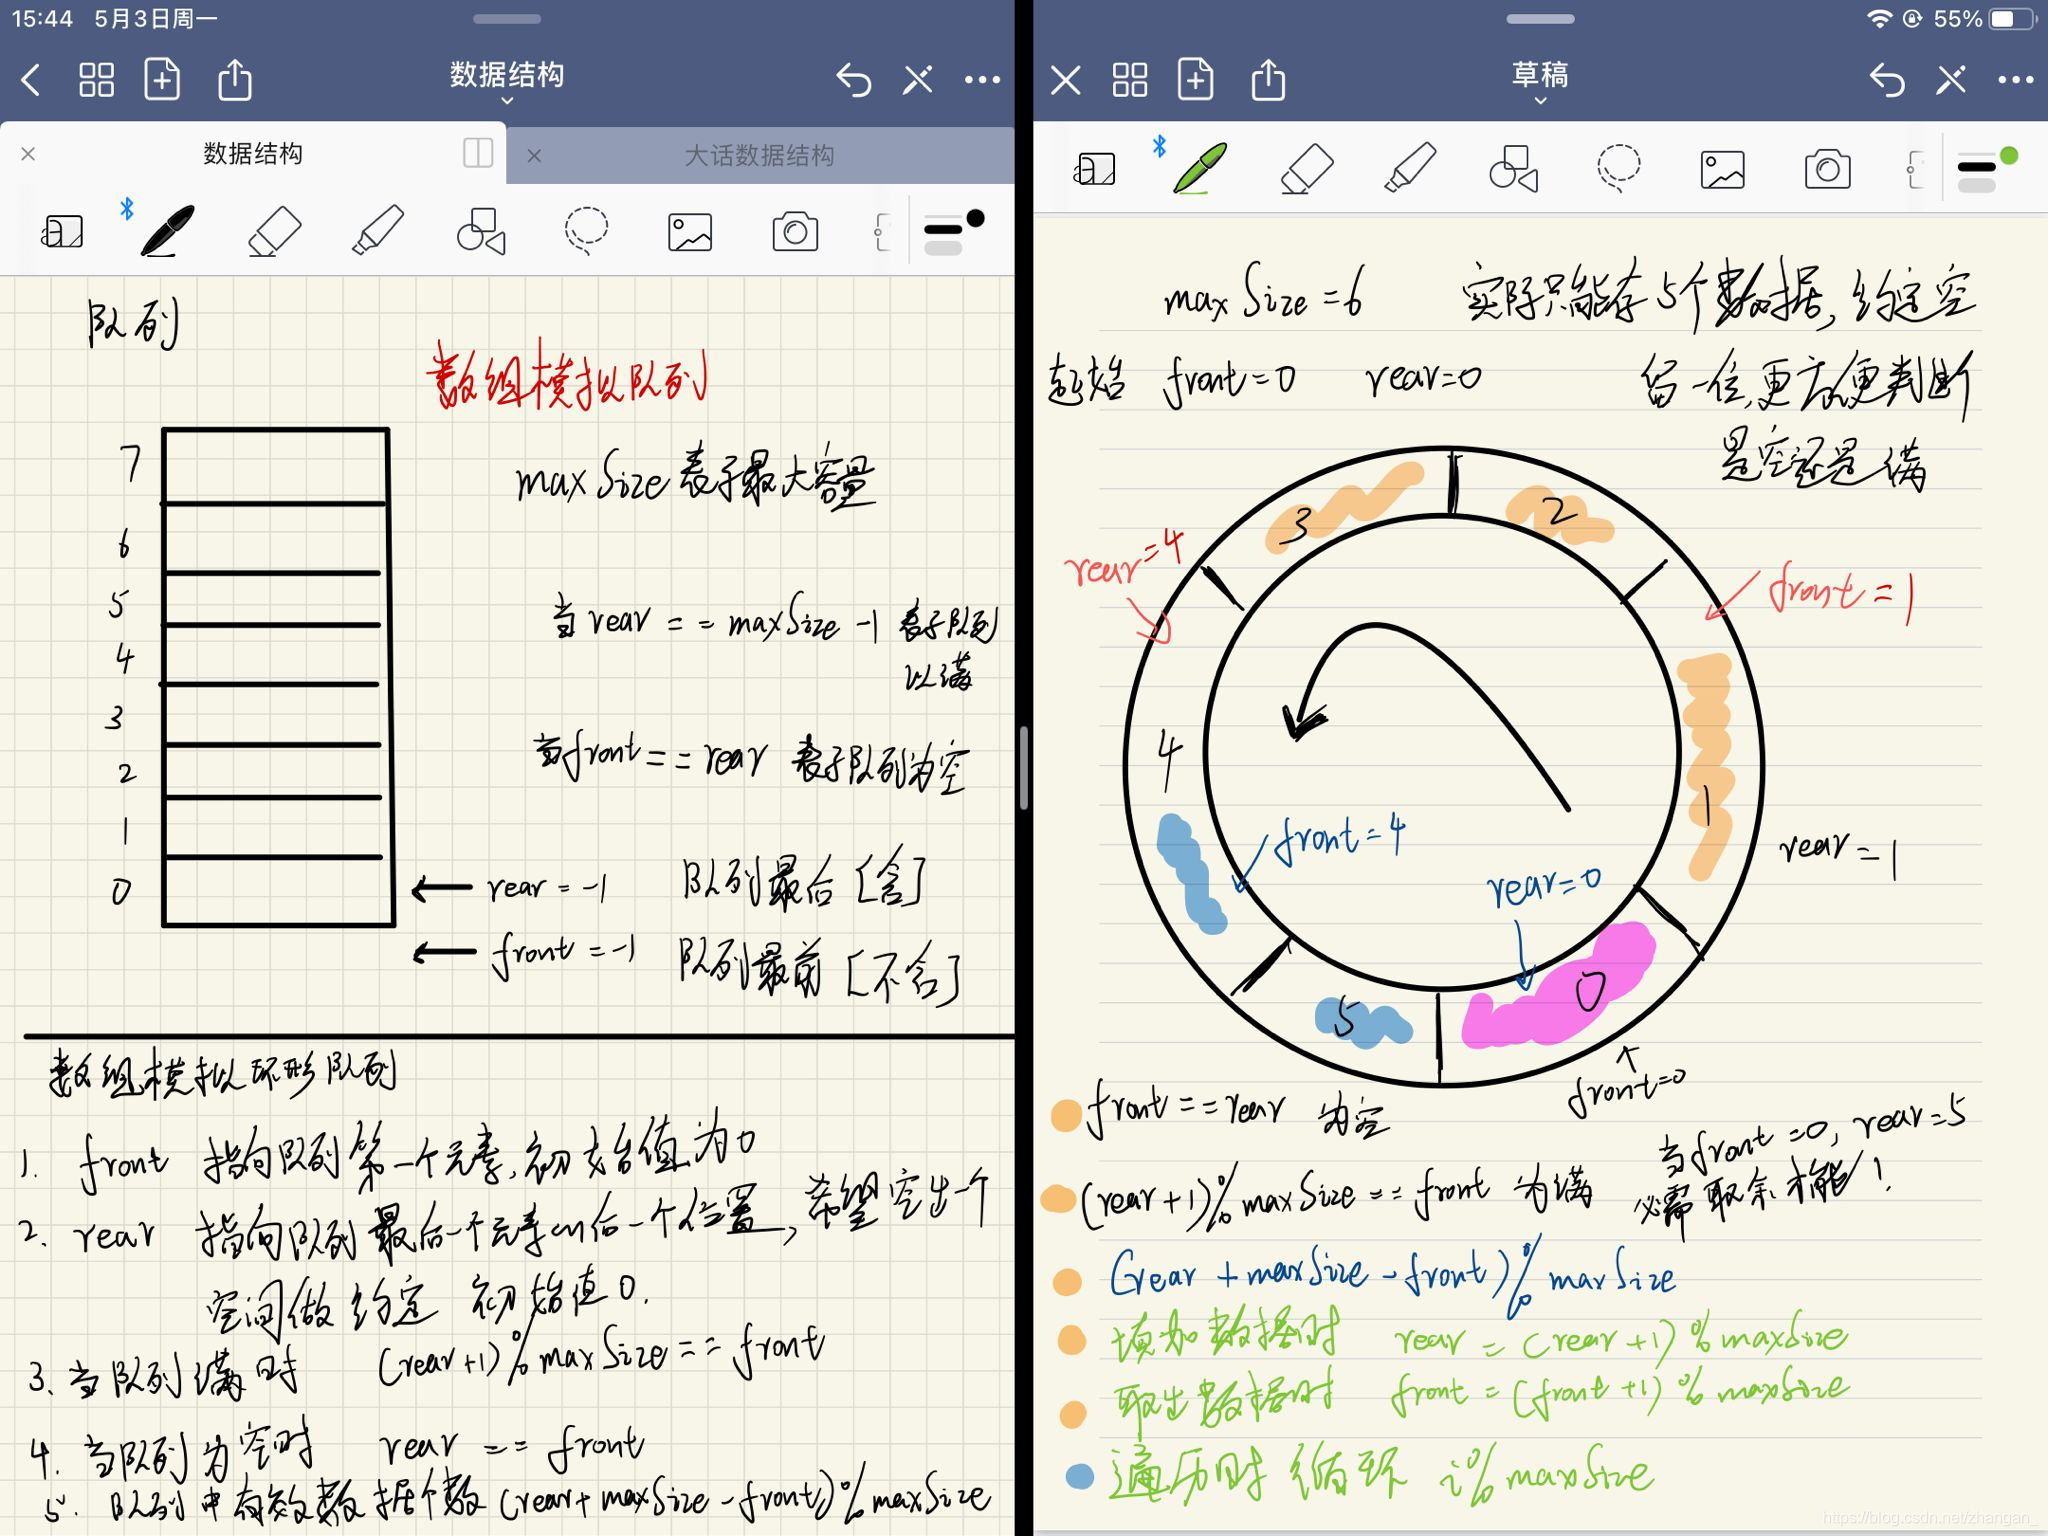 15:44 5月3日周一
55%
数据结构
数据结构
大话数据结构
队列
数组模拟队列
7
6
5
4
3
2
1
0
maxSize 表示最大容量
当 rear == maxSize -1 表示队列
以满
当front == rear 表示队列为空
rear = -1 队列最后 [含]
front = -1 队列最前 [不含]
数组模拟环形队列
1. front 指向队列第一个元素,初始值为0
2. rear 指向队列最后一个元素的后一个位置,希望空出一个
空间做约定 初始值0.
3. 当队列满时 (rear+1)%maxSize == front
4. 当队列为空时 rear == front
5. 队列中有效数据个数 (rear+maxSize-front)%maxSize
草稿
maxSize=6 实际只能存5个数据,约定空
起始 front=0 rear=0 留一位,更方便判断
是空还是满
3
2
rear=4
front=1
4
1
front=4
rear=0
rear=1
5
0
front=0
front==rear 为空
当front=0, rear=5
必需取余才能!
(rear+1)%maxSize == front 为满
(rear + maxSize - front)%maxSize
填加数据时 rear = (rear+1)%maxSize
取出数据时 front = (front+1)%maxSize
遍历时循环 i%maxSize
https://blog.csdn.net/zhangan_